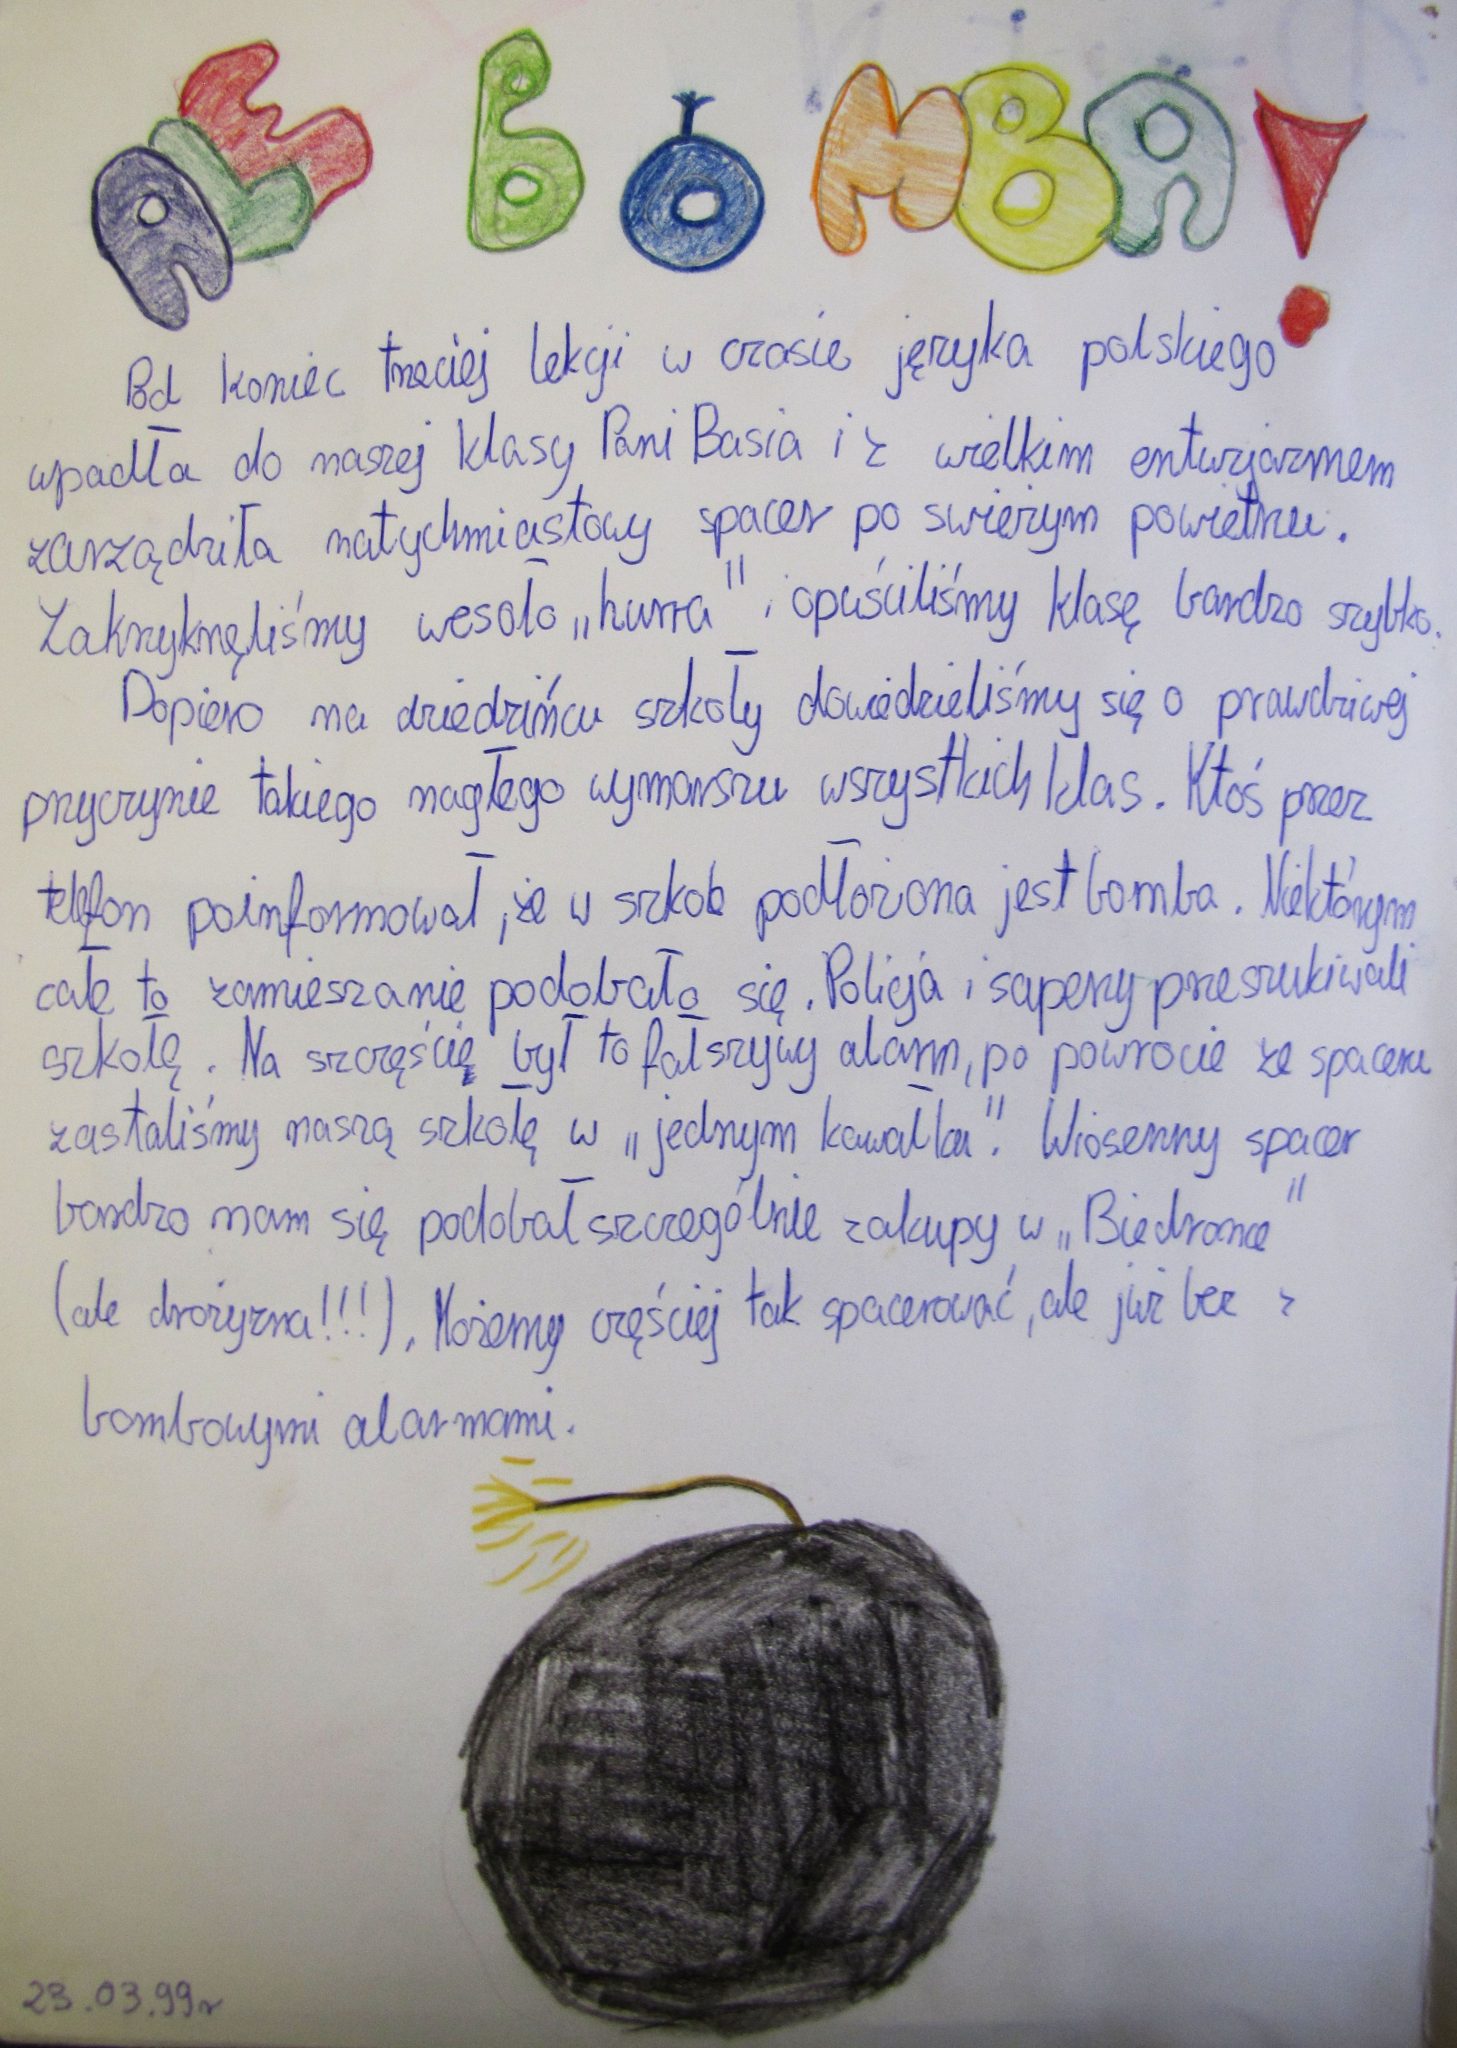 ALE BOMBA!
Pod koniec trzeciej lekcji w czasie języka polskiego
wpadła do naszej klasy Pani Basia i z wielkim entuzjazmem
zarządziła natychmiastowy spacer po świeżym powietrzu.
Zakrzyknęliśmy wesoło „hurra" i opuściliśmy klasę bardzo szybko.
Dopiero na dziedzińcu szkoły dowiedzieliśmy się o prawdziwej
przyczynie takiego nagłego wymarszu wszystkich klas. Ktoś przez
telefon poinformował, że w szkole podłożona jest bomba. Niektórym
całe to zamieszanie podobało się. Policja i saperzy przeszukiwali
szkołę. Na szczęście był to fałszywy alarm, po powrocie ze spaceru
zastaliśmy naszą szkołę w „jednym kawałku". Wiosenny spacer
bardzo nam się podobał szczególnie zakupy w „Biedronce"
(ale drożyzna!!!). Możemy częściej tak spacerować, ale już bez z
bombowymi alarmami.
23.03.99r